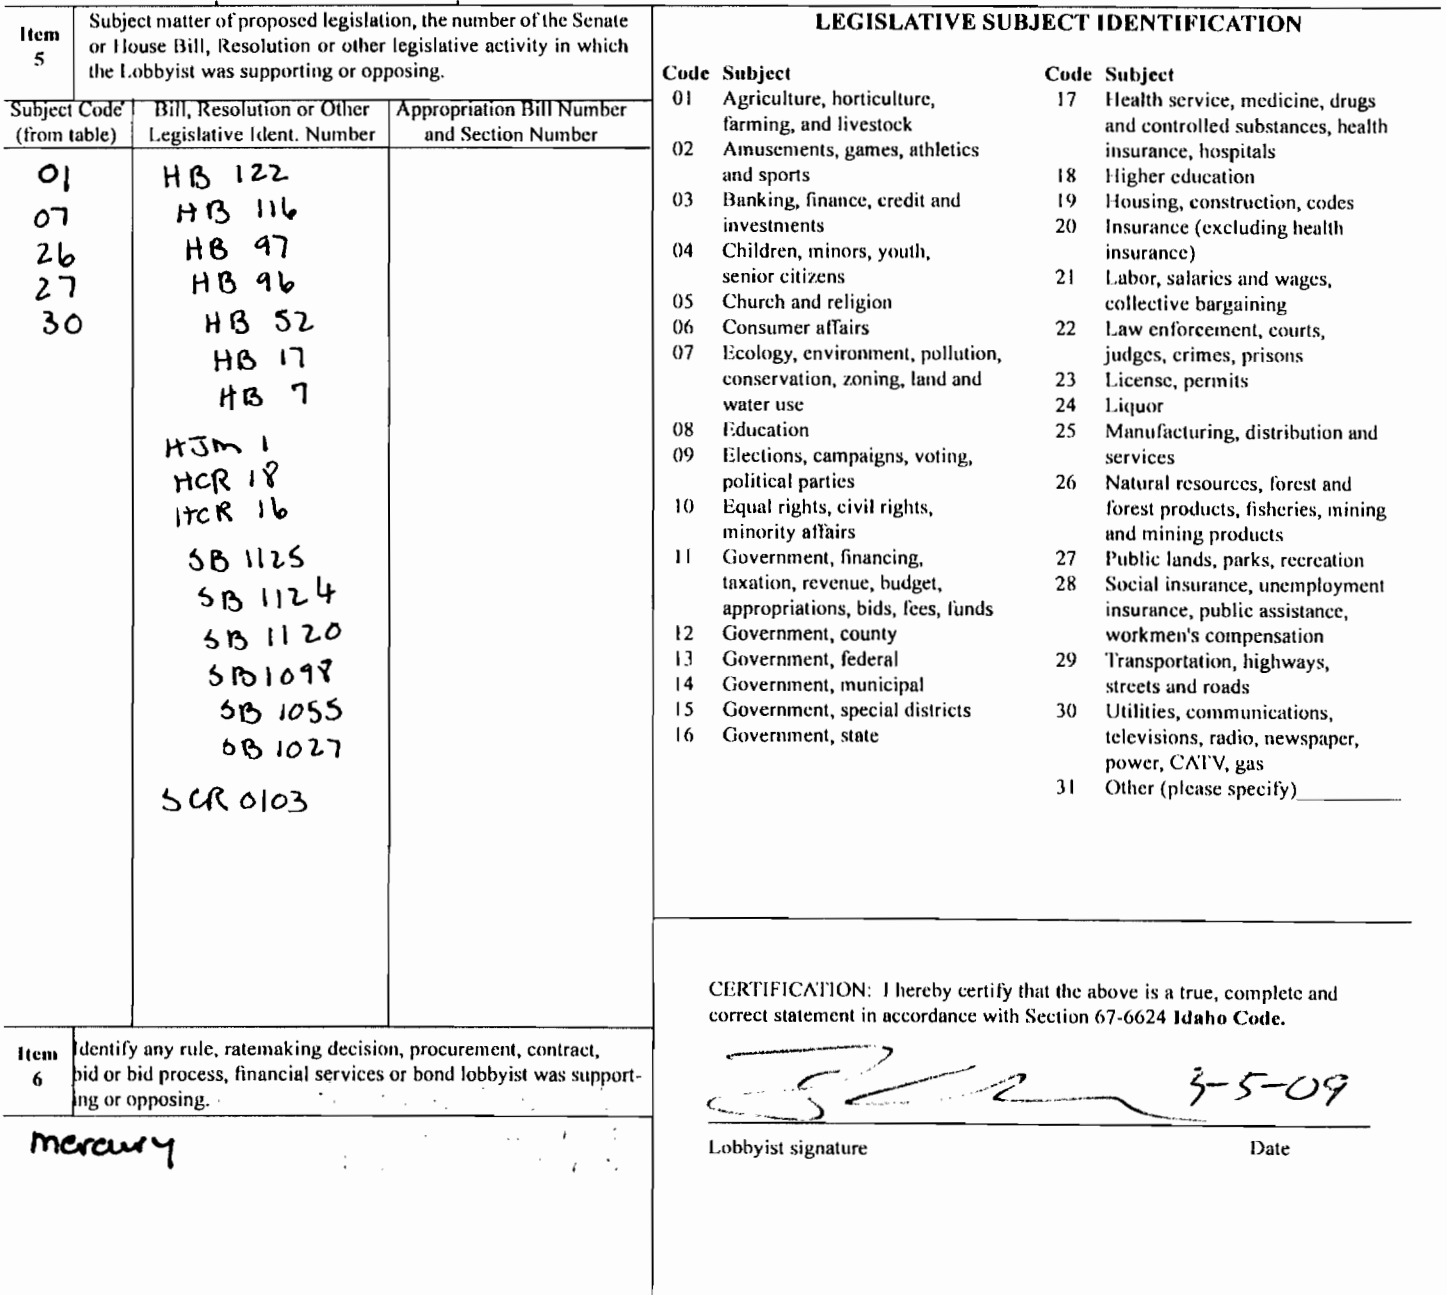 Item
5
Subject matter of proposed legislation, the number of the Senate
or House Bill, Resolution or other legislative activity in which
the Lobbyist was supporting or opposing.
Subject Code
(from table)
Bill, Resolution or Other
Legislative Ident. Number
Appropriation Bill Number
and Section Number
01 HB 122
07 HB 116
26 HB 97
27 HB 96
30 HB 52
HB 17
HB 7
HJM 1
HCR 18
HCR 16
SB 1125
SB 1124
SB 1120
SB 1098
SB 1055
SB 1027
SCR 0103
Item
6
Identify any rule, ratemaking decision, procurement, contract,
bid or bid process, financial services or bond lobbyist was support-
ing or opposing.
mercury
LEGISLATIVE SUBJECT IDENTIFICATION
Code Subject
01 Agriculture, horticulture,
farming, and livestock
02 Amusements, games, athletics
and sports
03 Banking, finance, credit and
investments
04 Children, minors, youth,
senior citizens
05 Church and religion
06 Consumer affairs
07 Ecology, environment, pollution,
conservation, zoning, land and
water use
08 Education
09 Elections, campaigns, voting,
political parties
10 Equal rights, civil rights,
minority affairs
11 Government, financing,
taxation, revenue, budget,
appropriations, bids, fees, funds
12 Government, county
13 Government, federal
14 Government, municipal
15 Government, special districts
16 Government, state
Code Subject
17 Health service, medicine, drugs
and controlled substances, health
insurance, hospitals
18 Higher education
19 Housing, construction, codes
20 Insurance (excluding health
insurance)
21 Labor, salaries and wages,
collective bargaining
22 Law enforcement, courts,
judges, crimes, prisons
23 License, permits
24 Liquor
25 Manufacturing, distribution and
services
26 Natural resources, forest and
forest products, fisheries, mining
and mining products
27 Public lands, parks, recreation
28 Social insurance, unemployment
insurance, public assistance,
workmen's compensation
29 Transportation, highways,
streets and roads
30 Utilities, communications,
televisions, radio, newspaper,
power, CATV, gas
31 Other (please specify)
CERTIFICATION: I hereby certify that the above is a true, complete and
correct statement in accordance with Section 67-6624 Idaho Code.
3-5-09
Lobbyist signature Date